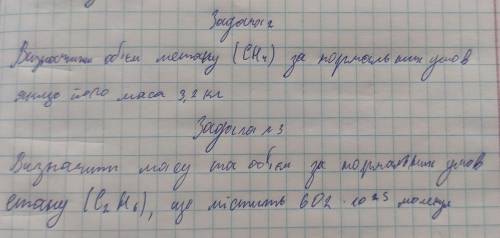 Задача 2
Визначити об'єм метану (CH4) за нормальних умов
якщо його маса 3,2 кг
Задача №3
Визначити масу та об'єм за нормальних умов
етану (C2H6), що містить 602 · 10²³ молекул